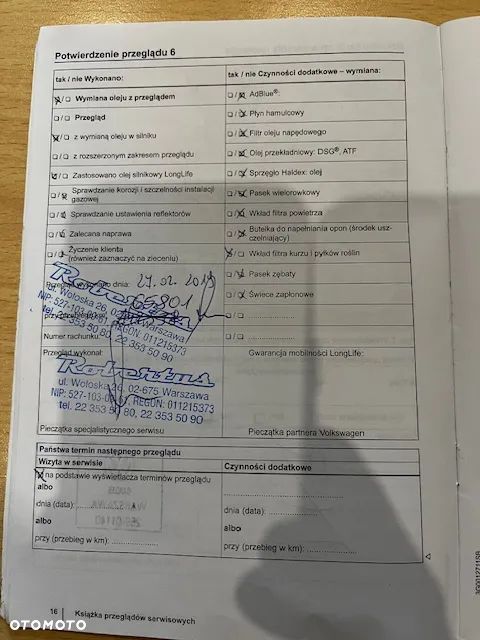 Potwierdzenie przeglądu 6
tak / nie Wykonano:
Wymiana oleju z przeglądem
Przegląd
z wymianą oleju w silniku
z rozszerzonym zakresem przeglądu
Zastosowano olej silnikowy LongLife
Sprawdzanie korozji i szczelności instalacji
gazowej
Sprawdzanie ustawienia reflektorów
Zalecana naprawa
Życzenie klienta
(również zaznaczyć na zleceniu)
Przegląd wykonano dnia: 27.02.2019
Robertus
65801
ul. Wołoska 26, 02-675 Warszawa
NIP: 527-103-00-61, REGON: 011215373
tel. 22 353 50 80, 22 353 50 90
Numer rachunku:
Przegląd wykonał:
Robertus
ul. Wołoska 26, 02-675 Warszawa
NIP: 527-103-00-61, REGON: 011215373
tel. 22 353 50 80, 22 353 50 90
Pieczątka specjalistycznego serwisu
tak / nie Czynności dodatkowe – wymiana:
AdBlue®:
Płyn hamulcowy
Filtr oleju napędowego
Olej przekładniowy: DSG®, ATF
Sprzęgło Haldex: olej
Pasek wielorowkowy
Wkład filtra powietrza
Butelka do napełniania opon (środek usz-
czelniający)
Wkład filtra kurzu i pyłków roślin
Pasek zębaty
Świece zapłonowe
Gwarancja mobilności LongLife:
Pieczątka partnera Volkswagen
Państwa termin następnego przeglądu
Wizyta w serwisie
na podstawie wyświetlacza terminów przeglądu
albo
dnia (data):
albo
przy (przebieg w km):
Czynności dodatkowe
dnia (data):
albo
przy (przebieg w km):
16 | Książka przeglądów serwisowych
OTOMOTO